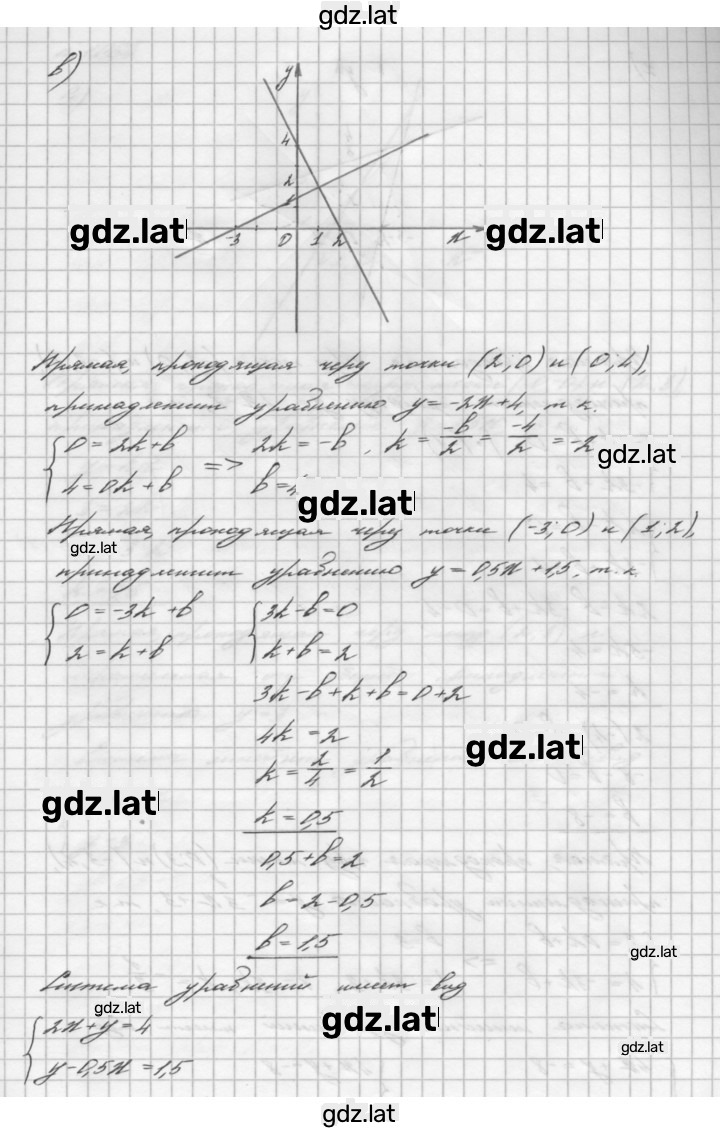 gdz.lat
в)
y
4
2
1
gdz.lat gdz.lat
-3 0 1 2 x
Прямая, проходящая через точки (2; 0) и (0; 4),
принадлежит уравнению y = -2x + 4, т. к.
{ 0 = 2k + b => 2k = -b, k = -b/2 = -4/2 = -2
4 = 0k + b b = 4
gdz.lat
gdz.lat
Прямая, проходящая через точки (-3; 0) и (1; 2),
gdz.lat
принадлежит уравнению y = 0,5x + 1,5, т. к.
{ 0 = -3k + b { 3k - b = 0
2 = k + b k + b = 2
3k - b + k + b = 0 + 2
4k = 2
gdz.lat
k = 2/4 = 1/2
gdz.lat
k = 0,5
0,5 + b = 2
b = 2 - 0,5
b = 1,5
gdz.lat
Система уравнений имеет вид
gdz.lat
gdz.lat
{ 2x + y = 4
y - 0,5x = 1,5
gdz.lat
gdz.lat